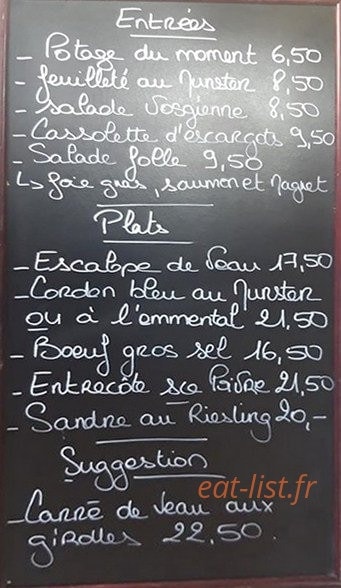 Entrées
- Potage du moment 6,50
- feuilleté au Munster 8,50
- Salade Vosgienne 8,50
- Cassolette d'escargots 9,50
- Salade folle 9,50
↳ foie gras, saumon et Magret
Plats
- Escalope de Veau 17,50
- Cordon bleu au Munster
ou à l'emmental 21,50
- Boeuf gros sel 16,50
- Entrecôte sce Poivre 21,50
- Sandre au Riesling 20,-
Suggestion
eat-list.fr
- Carré de Veau aux
girolles 22,50.